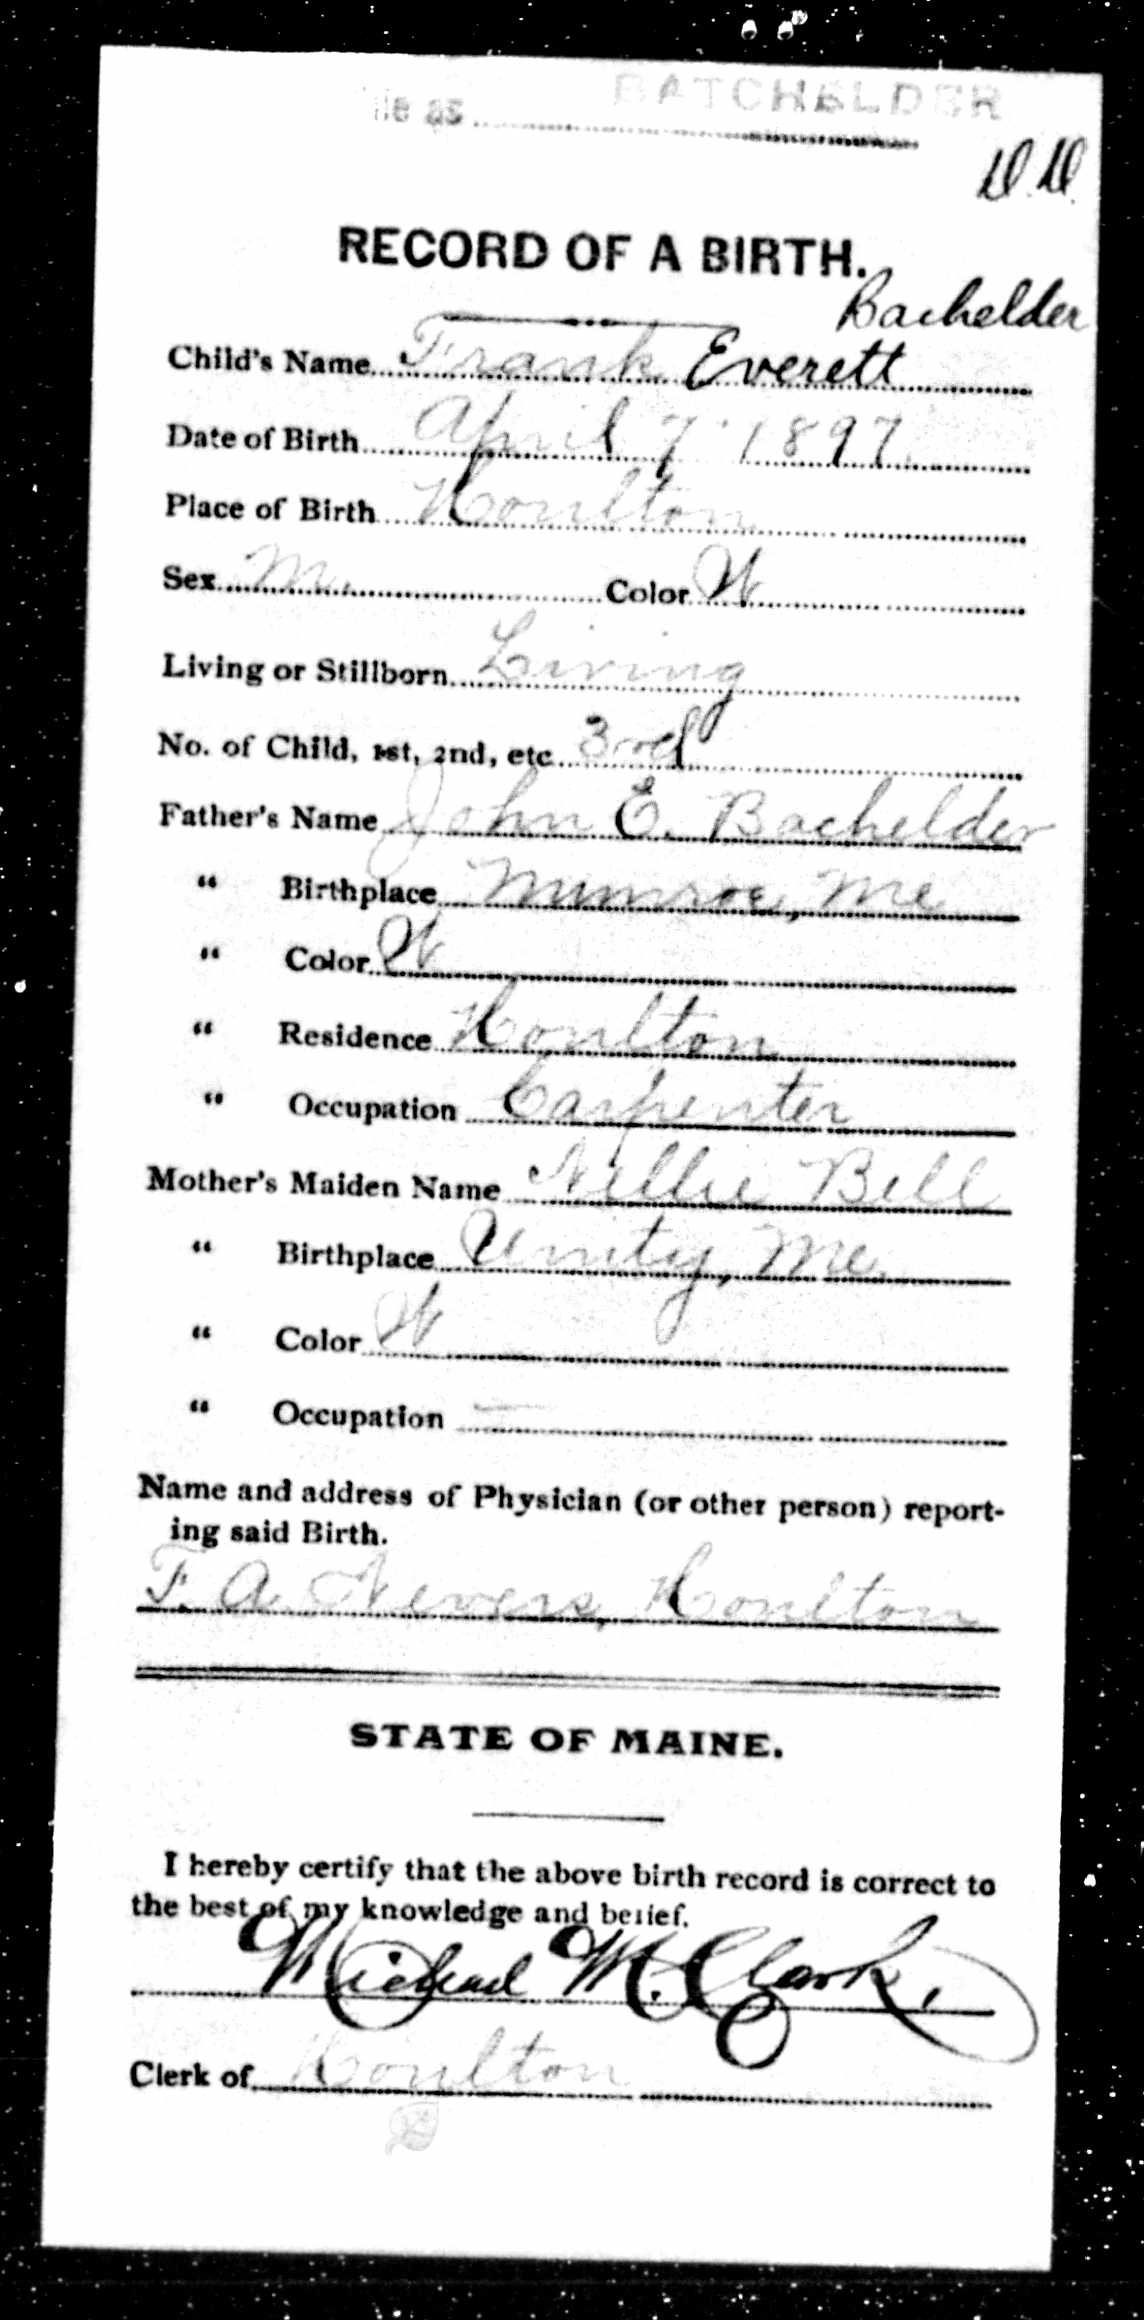 File as BATCHELDER
D.D.
RECORD OF A BIRTH.
Bachelder
Child's Name Frank Everett
Date of Birth April 7 1897
Place of Birth Houlton
Sex M. Color W
Living or Stillborn Living
No. of Child, 1st, 2nd, etc 3rd
Father's Name John E. Bachelder
" Birthplace Munroe, Me
" Color W
" Residence Houlton
" Occupation Carpenter
Mother's Maiden Name Nellie Bell
" Birthplace Unity, Me.
" Color W
" Occupation —
Name and address of Physician (or other person) report-
ing said Birth.
F. A. Nevers, Houlton
STATE OF MAINE.
I hereby certify that the above birth record is correct to
the best of my knowledge and belief.
Michael M. Clark,
Clerk of Houlton